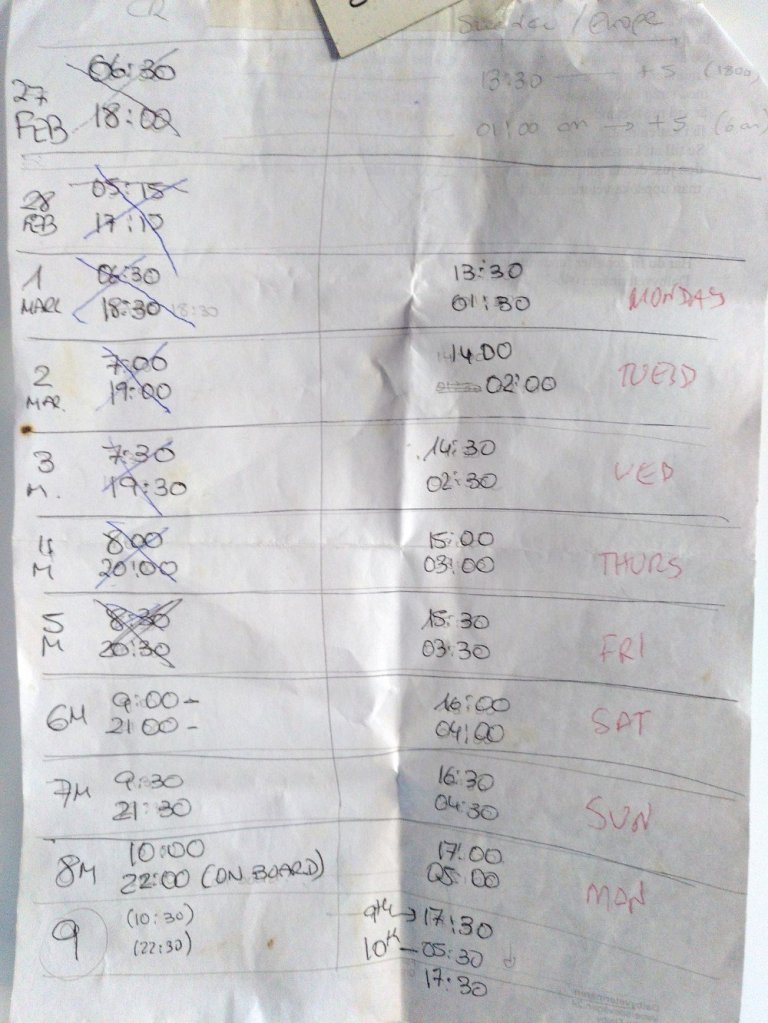 CR Sweden / Europe
27 06:30 13:30 +5 (1800)
FEB 18:00 01:00 am → +5 (6am)
28 05:15
FEB 17:15
1 06:30 13:30
MARC 18:30 18:30 01:30 MONDAY
2 7:00 14:00
MAR. 19:00 02:00 TUESD
3 7:30 14:30
M. 19:30 02:30 WED
4 8:00 15:00
M 20:00 03:00 THURS
5 8:30 15:30
M 20:30 03:30 FRI
6M 9:00- 16:00
21:00- 04:00 SAT
7M 9:30 16:30
21:30 04:30 SUN
8M 10:00 17:00
22:00 (ON BOARD) 05:00 MAN
9 (10:30) 9th→ 17:30
(22:30) 10th— 05:30
17:30